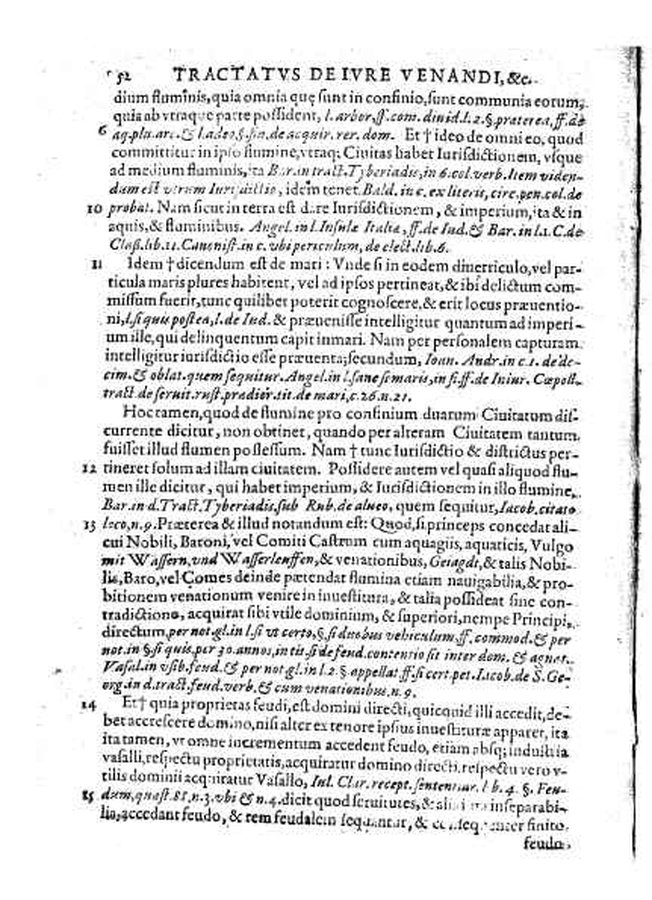 52 TRACTATVS DE IVRE VENANDI, &c.
dium fluminis, quia omnia quę sunt in confinio, sunt communia eorum,
quia ab vtraque parte possident, l. arbor, ff. com. diuid. l. 2. §. præterea, ff. de
6 aq. plu. arc. & l. adeo, §. fin. de acquir. rer. dom. Et † ideo de omni eo, quod
committitur in ipso flumine, vtraq; Ciuitas habet Iurisdictionem, vsque
ad medium fluminis, ita Bar. in tract. Tyberiadis, in 6. col. verb. Item viden-
dum est vtrum Iurisdictio, idem tenet. Bald. in c. ex literis, circ. pen. col. de
10 probat. Nam sicut in terra est dare Iurisdictionem, & imperium, ita & in
aquis, & fluminibus. Angel. in l. Insulæ Italia, ff. de Iud. & Bar. in l. 1. C. de
Class. lib. 11. Canonist. in c. vbi periculum, de elect. lib. 6.
11 Idem † dicendum est de mari: Vnde si in eodem diuerticulo, vel par-
ticula maris plures habitent, vel ad ipsos pertineat, & ibi delictum com-
missum fuerit, tunc quilibet poterit cognoscere, & erit locus præuentio-
ni, l. si quis postea, l. de Iud. & præuenisse intelligitur quantum ad imperi-
um ille, qui delinquentum capit in mari. Nam per personalem capturam
intelligitur iurisdictio esse præuenta; secundum, Ioan. Andr. in c. 1. de de-
cim. & oblat. quem sequitur. Angel. in l. sane si maris, in fi. ff. de Iniur. Cæpoll.
tract. de seruit. rust. prædior. tit. de mari, c. 26. n. 21.
Hoc tamen, quod de flumine pro confinium duarum Ciuitatum dis-
currente dicitur, non obtinet, quando per alteram Ciuitatem tantum
fuisset illud flumen possessum. Nam † tunc Iurisdictio & districtus per-
12 tineret solum ad illam ciuitatem. Possidere autem vel quasi aliquod flu-
men ille dicitur, qui habet imperium, & Iurisdictionem in illo flumine,
Bar. in d. Tract. Tyberiadis, sub Rub. de alueo, quem sequitur, Iacob. citato
13 loco, n. 9. Præterea & illud notandum est: Quod, si princeps concedat ali-
cui Nobili, Baroni, vel Comiti Castrum cum aquagiis, aquaticis, Vulgo
mit Wassern, vnd Wasserleuffen, & venationibus, Geiagdt, & talis Nobi-
lis, Baro, vel Comes deinde prætendat flumina etiam nauigabilia, & pro-
bitionem venationum venire in inuestitura, & talia possideat sine con-
tradictione, acquirat sibi vtile dominium, & superiori, nempe Principi,
directum, per not. gl. in l. si vt certo, §. si duobus vehiculum, ff. commod. & per
not. in §. si quis per 30. annos, in tit. si de feud. contentio sit inter dom. & agnat.
Vasal. in vsib. feud. & per not. gl. in l. 2. §. appellat. ff. si cert. pet. Iacob. de S. Ge-
org. in d. tract. feud. verb. & cum venationibus. n. 9.
14 Et † quia proprietas feudi, est domini directi, quicquid illi accedit, de-
bet accrescere domino, nisi alter ex tenore ipsius inuestituræ apparet, ita
ita tamen, vt omne incrementum accedent feudo, etiam absq; industria
vasalli, respectu proprietatis, acquiratur domino directi, respectu vero v-
tilis dominii acquiratur Vasallo, Iul. Clar. recept. sententiar. lib. 4. §. Feu-
15 dum, quæst. 81. n. 3. vbi & n. 4. dicit quod seruitutes, & alia inseparabi-
lia, accedant feudo, & rem feudalem sequantur, & consequenter finito
feudo,